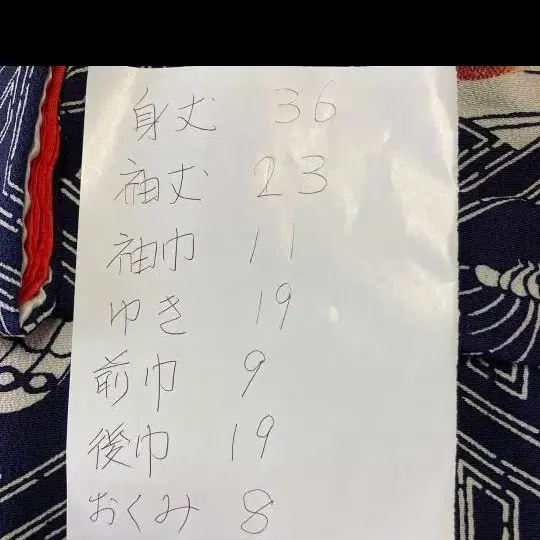 身丈 36
袖丈 23
袖巾 11
ゆき 19
前巾 9
後巾 19
おくみ 8